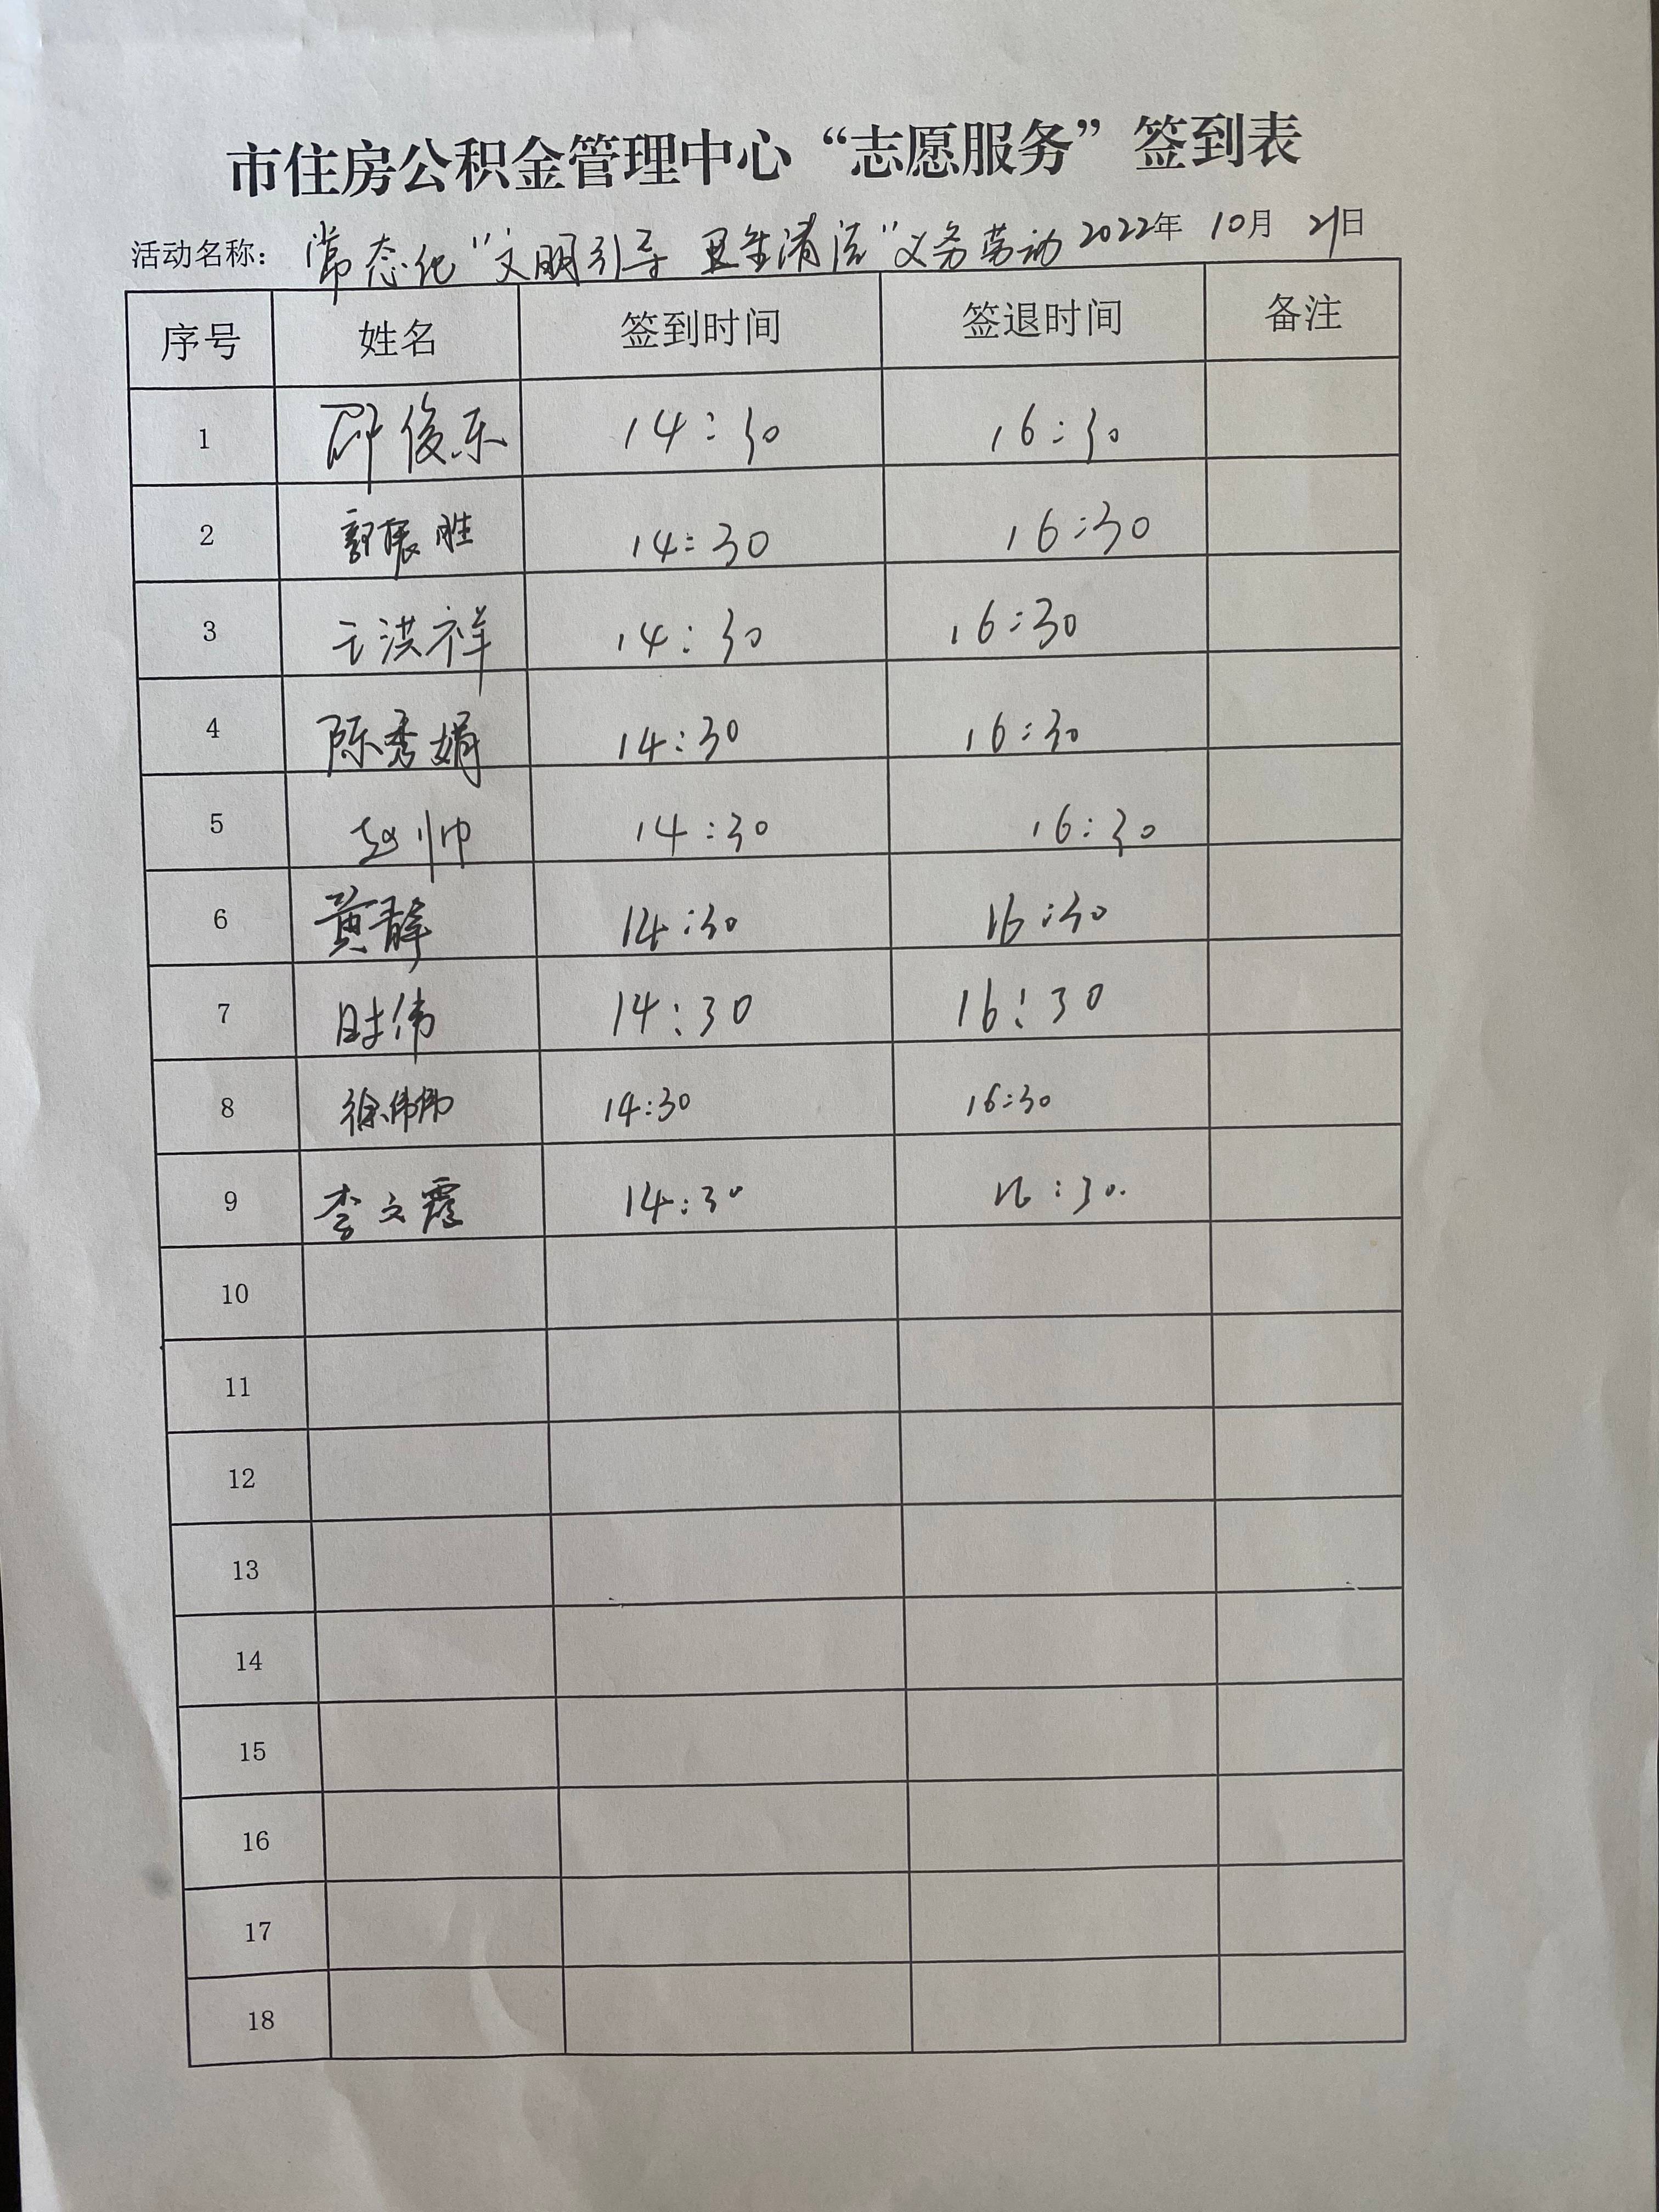 市住房公积金管理中心“志愿服务”签到表
活动名称：常态化“文明引导 卫生清洁”义务劳动 2022年 10月 21日
序号 姓名 签到时间 签退时间 备注
1 俊乐 14:30 16:30
2 郭振胜 14:30 16:30
3 洪祥 14:30 16:30
4 陈秀娟 14:30 16:30
5 赵帅 14:30 16:30
6 黄静 14:30 16:30
7 时伟 14:30 16:30
8 徐伟伟 14:30 16:30
9 李文霞 14:30 16:30
10
11
12
13
14
15
16
17
18